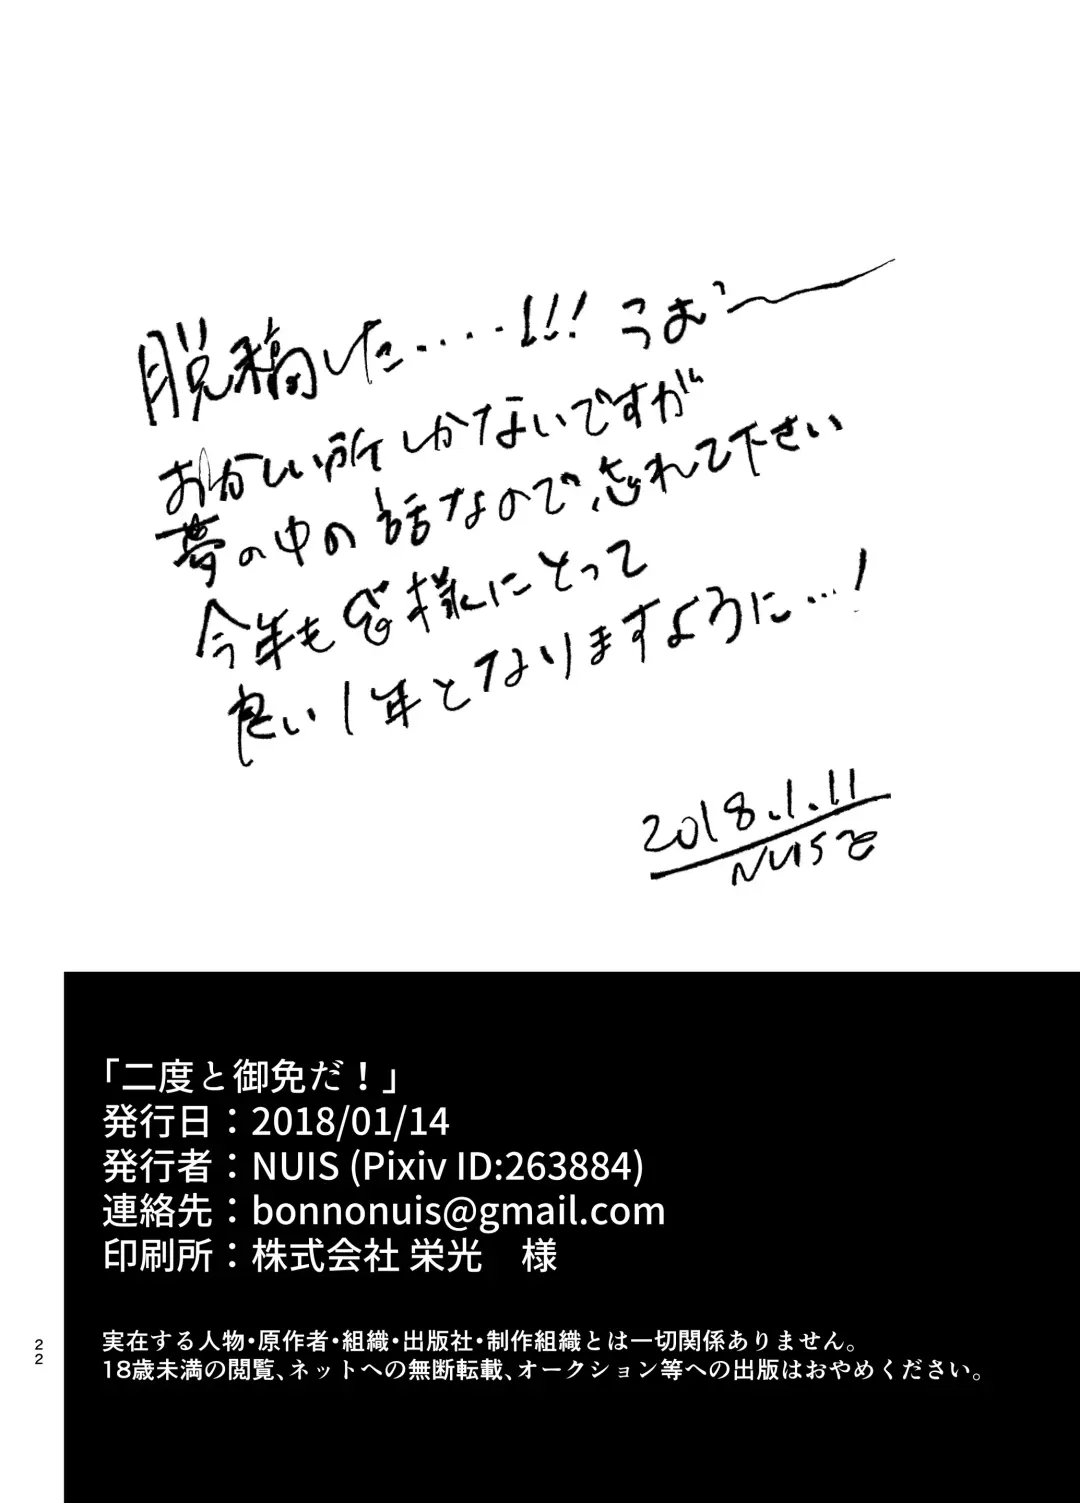 脱稿した....!!! うお〜
おかしい所しかないですが
夢の中の話なので忘れて下さい
今年も皆様にとって
良い1年となりますように...!
2018.1.11
NUIS
「二度と御免だ！」
発行日：2018/01/14
発行者：NUIS (Pixiv ID:263884)
連絡先：bonnonuis@gmail.com
印刷所：株式会社 栄光　様
22
実在する人物・原作者・組織・出版社・制作組織とは一切関係ありません。
18歳未満の閲覧、ネットへの無断転載、オークション等への出版はおやめください。